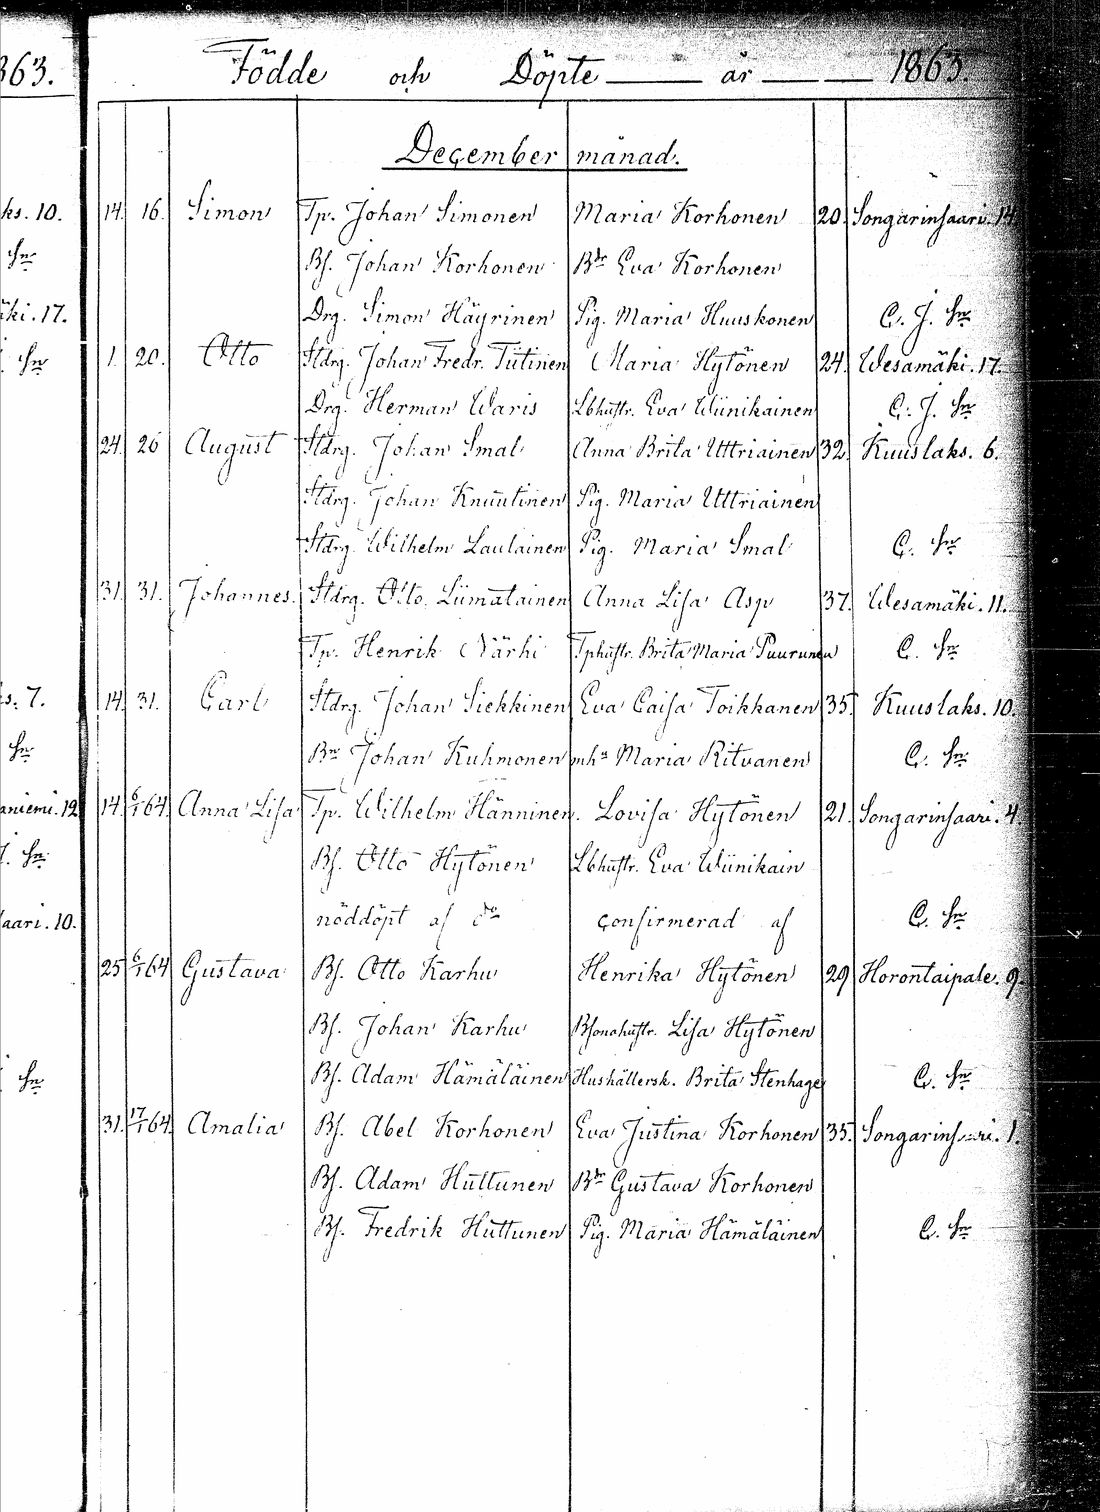 863.
Födde och Döpte år 1863
December månad.
ks. 10. 14. 16. Simon Tp. Johan Simonen Maria Korhonen 20. Songarinsaari. 14
Bs. Johan Korhonen Bdr Eva Korhonen
äki. 17. Drg. Simon Häyrinen Pig. Maria Huuskonen C. J. Sn
1. 20. Otto Stdrg. Johan Fredr. Tiitinen Maria Hytönen 24. Wesamäki. 17.
Drg. Herman Waris Lbhustr. Eva Wiinikainen C. J. Sn
24. 26 August Stdrg. Johan Smal Anna Brita Uttriainen 32. Kuuslaks. 6.
Stdrg. Johan Knuutinen Pig. Maria Uttriainen
Stdrg. Wilhelm Laulainen Pig. Maria Smal C. Sn
31. 31. Johannes. Stdrg. Otto Liimatainen Anna Lisa Asp 37. Wesamäki. 11.
Tp. Henrik Närhi Tphustr. Brita Maria Puurunen C. Sn
s. 7. 14. 31. Carl Stdrg. Johan Siekkinen Eva Caisa Toikkanen 35. Kuuslaks. 10.
Bn Johan Kuhmonen mha Maria Ritvanen C. Sn
aniemi. 12 14. 6/1 64. Anna Lisa Tp. Wilhelm Hänninen. Lovisa Hytönen 21. Songarinsaari. 4.
Bs. Otto Hytönen Lbhustr. Eva Wiinikain
saari. 10. nöddöpt af do confirmerad af C. Sn
25 6/1 64 Gustava Bs. Otto Karhu Henrika Hytönen 29 Horontaipale. 9.
Bs. Johan Karhu Bsonahustr. Lisa Hytönen
Bs. Adam Hämäläinen Hushållersk. Brita Stenhage C. Sn
31. 17/1 64. Amalia Bs. Abel Korhonen Eva Justina Korhonen 35. Songarinsaari. 1.
Bs. Adam Huttunen Bdr Gustava Korhonen
Bs. Fredrik Huttunen Pig. Maria Hämäläinen C. Sn